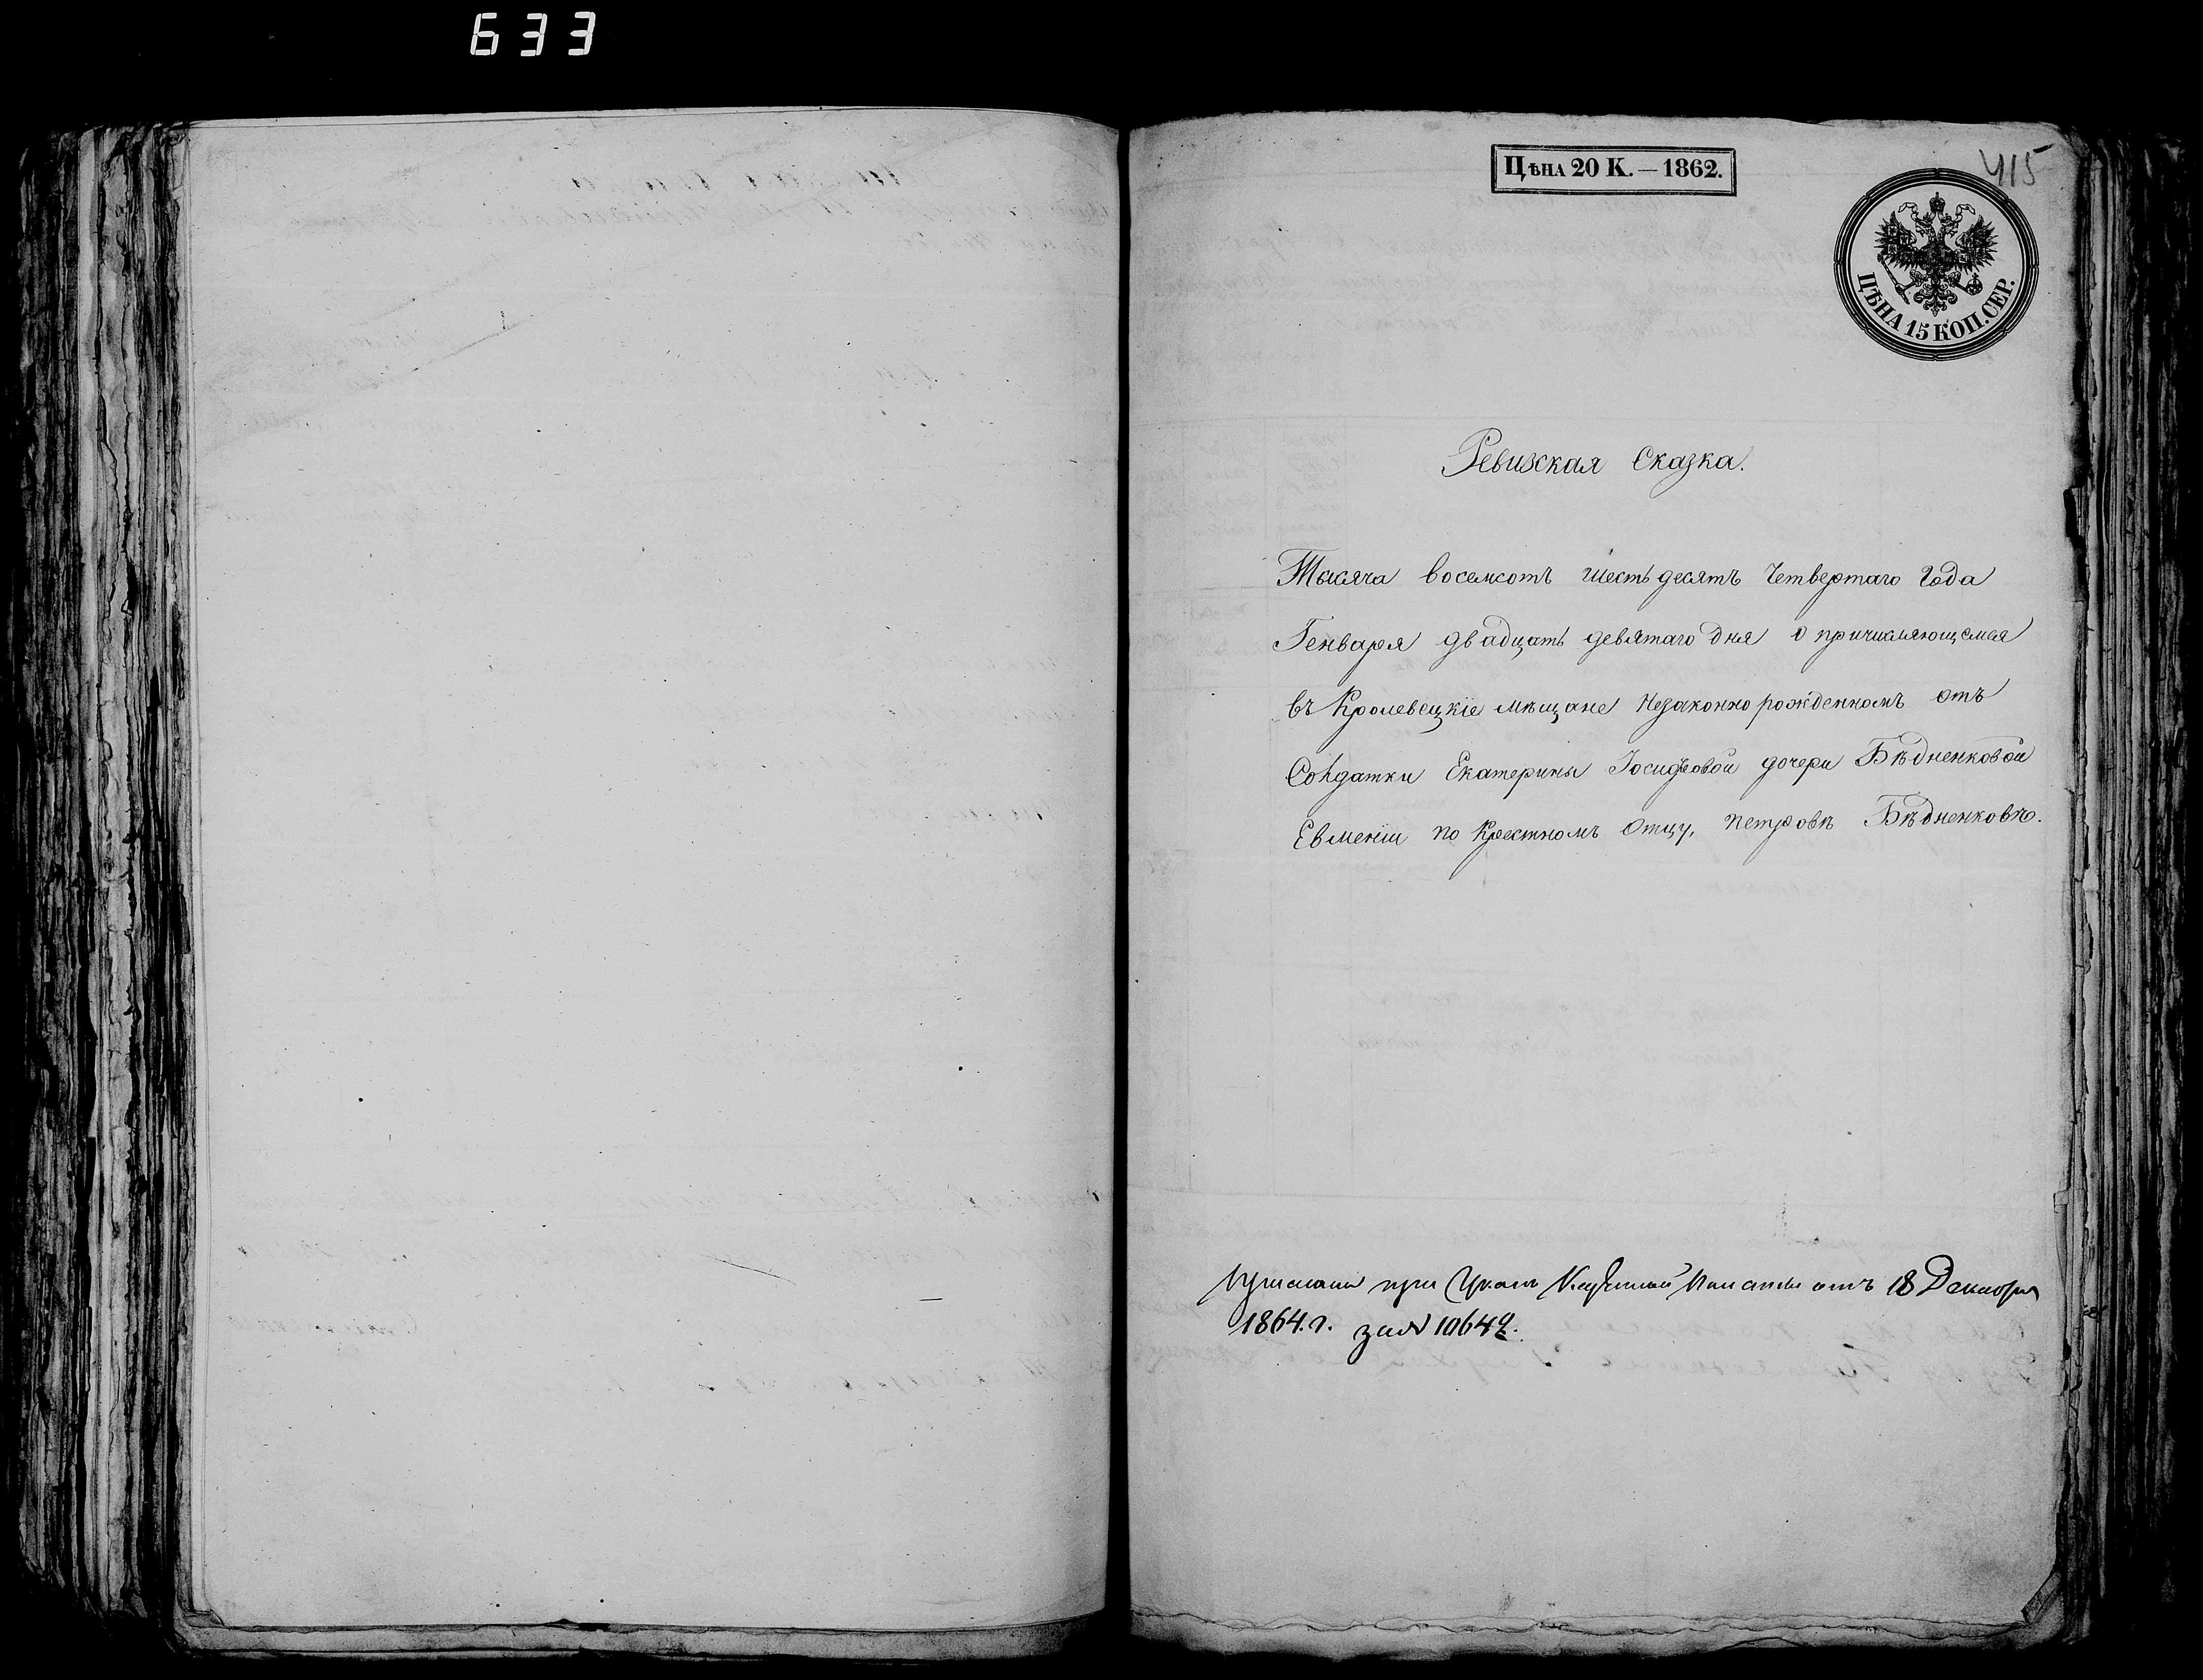 633
Цѣна 20 К. — 1862.
415
ЦѢНА 15 КОП. СЕР.
Ревизская Сказка.
Тысяча восемсотъ шестьдесятъ Четвертаго Года
Генваря двадцать девятаго дня о причисляющемся
въ Кролевецкіе мѣщане Незаконно рожденномъ отъ
Солдатки Екатерины Іосифовой дочери Бѣдненковой
Евменіи по Крестномъ Отцу, Петровѣ Бѣдненковѣ.
при Указѣ Казенной Палаты отъ 18 Декабря
1864. г. за №